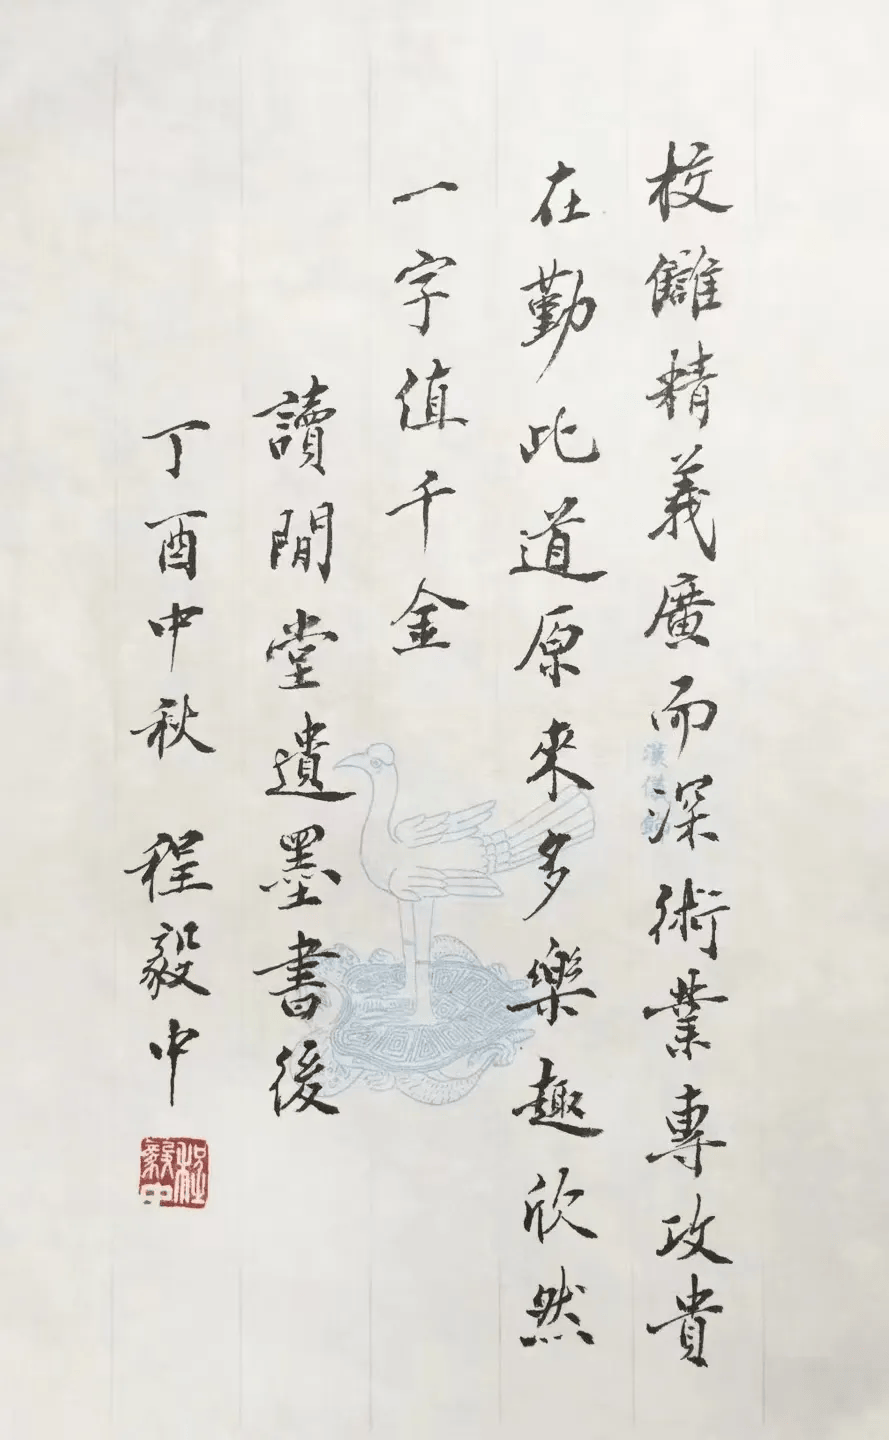 校讎精義廣而深術業專攻貴
在勤此道原來多樂趣欣然
一字值千金
讀閒堂遺墨書後
丁酉中秋 程毅中
程毅中
漢儀